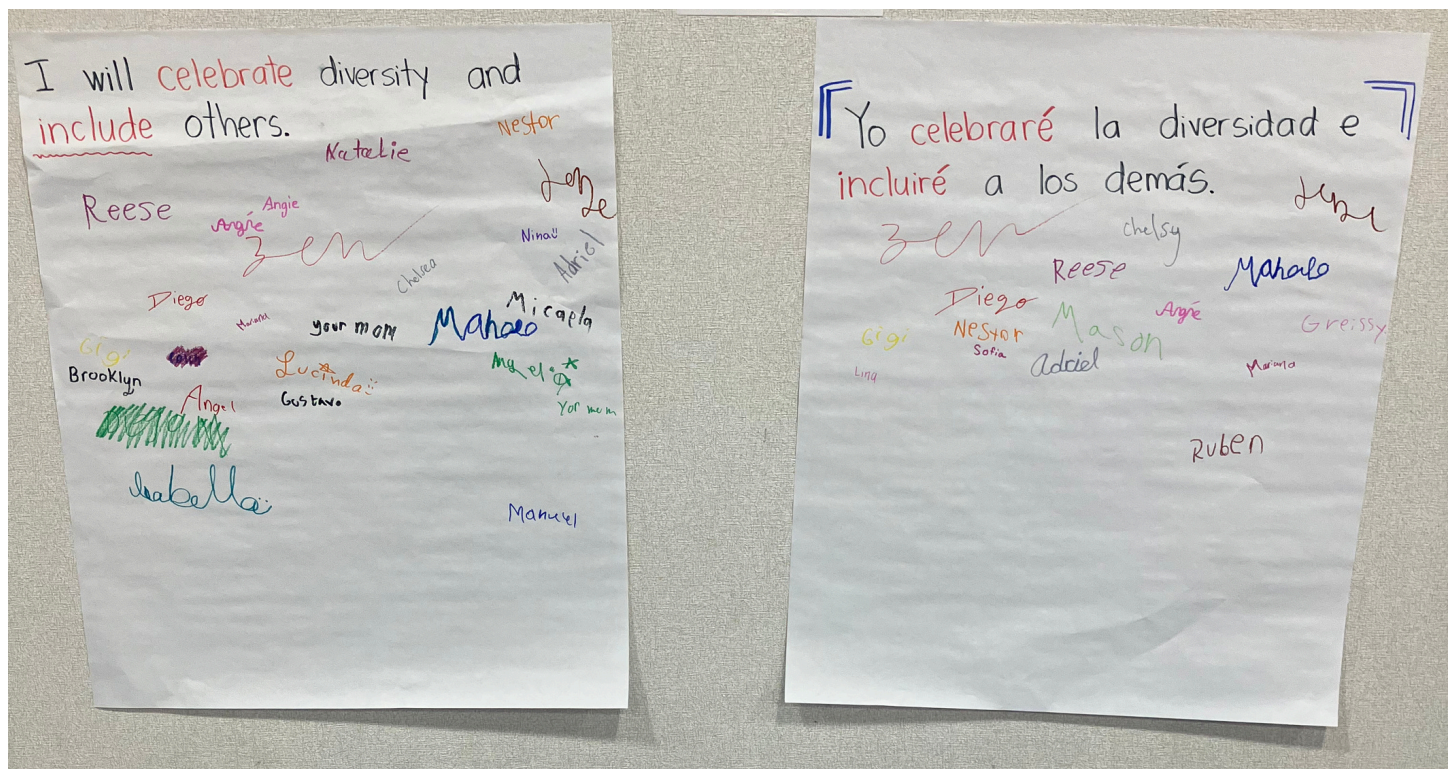 I will celebrate diversity and
include others.
Nestor
Natalie
Reese
Angie
Angie
zen
Nina
Adriel
Chelsea
Diego
Mariana
your mom
Micaela
Gigi
Brooklyn
Lucinda
Gustavo
Angel
Angel
Yor mum
Isabella
Manuel
Yo celebraré la diversidad e
incluiré a los demás.
zen
Chelsy
Reese
Diego
Nestor
Mason
Angie
Greissy
Gigi
Sofia
Adriel
Lina
Mariana
Ruben